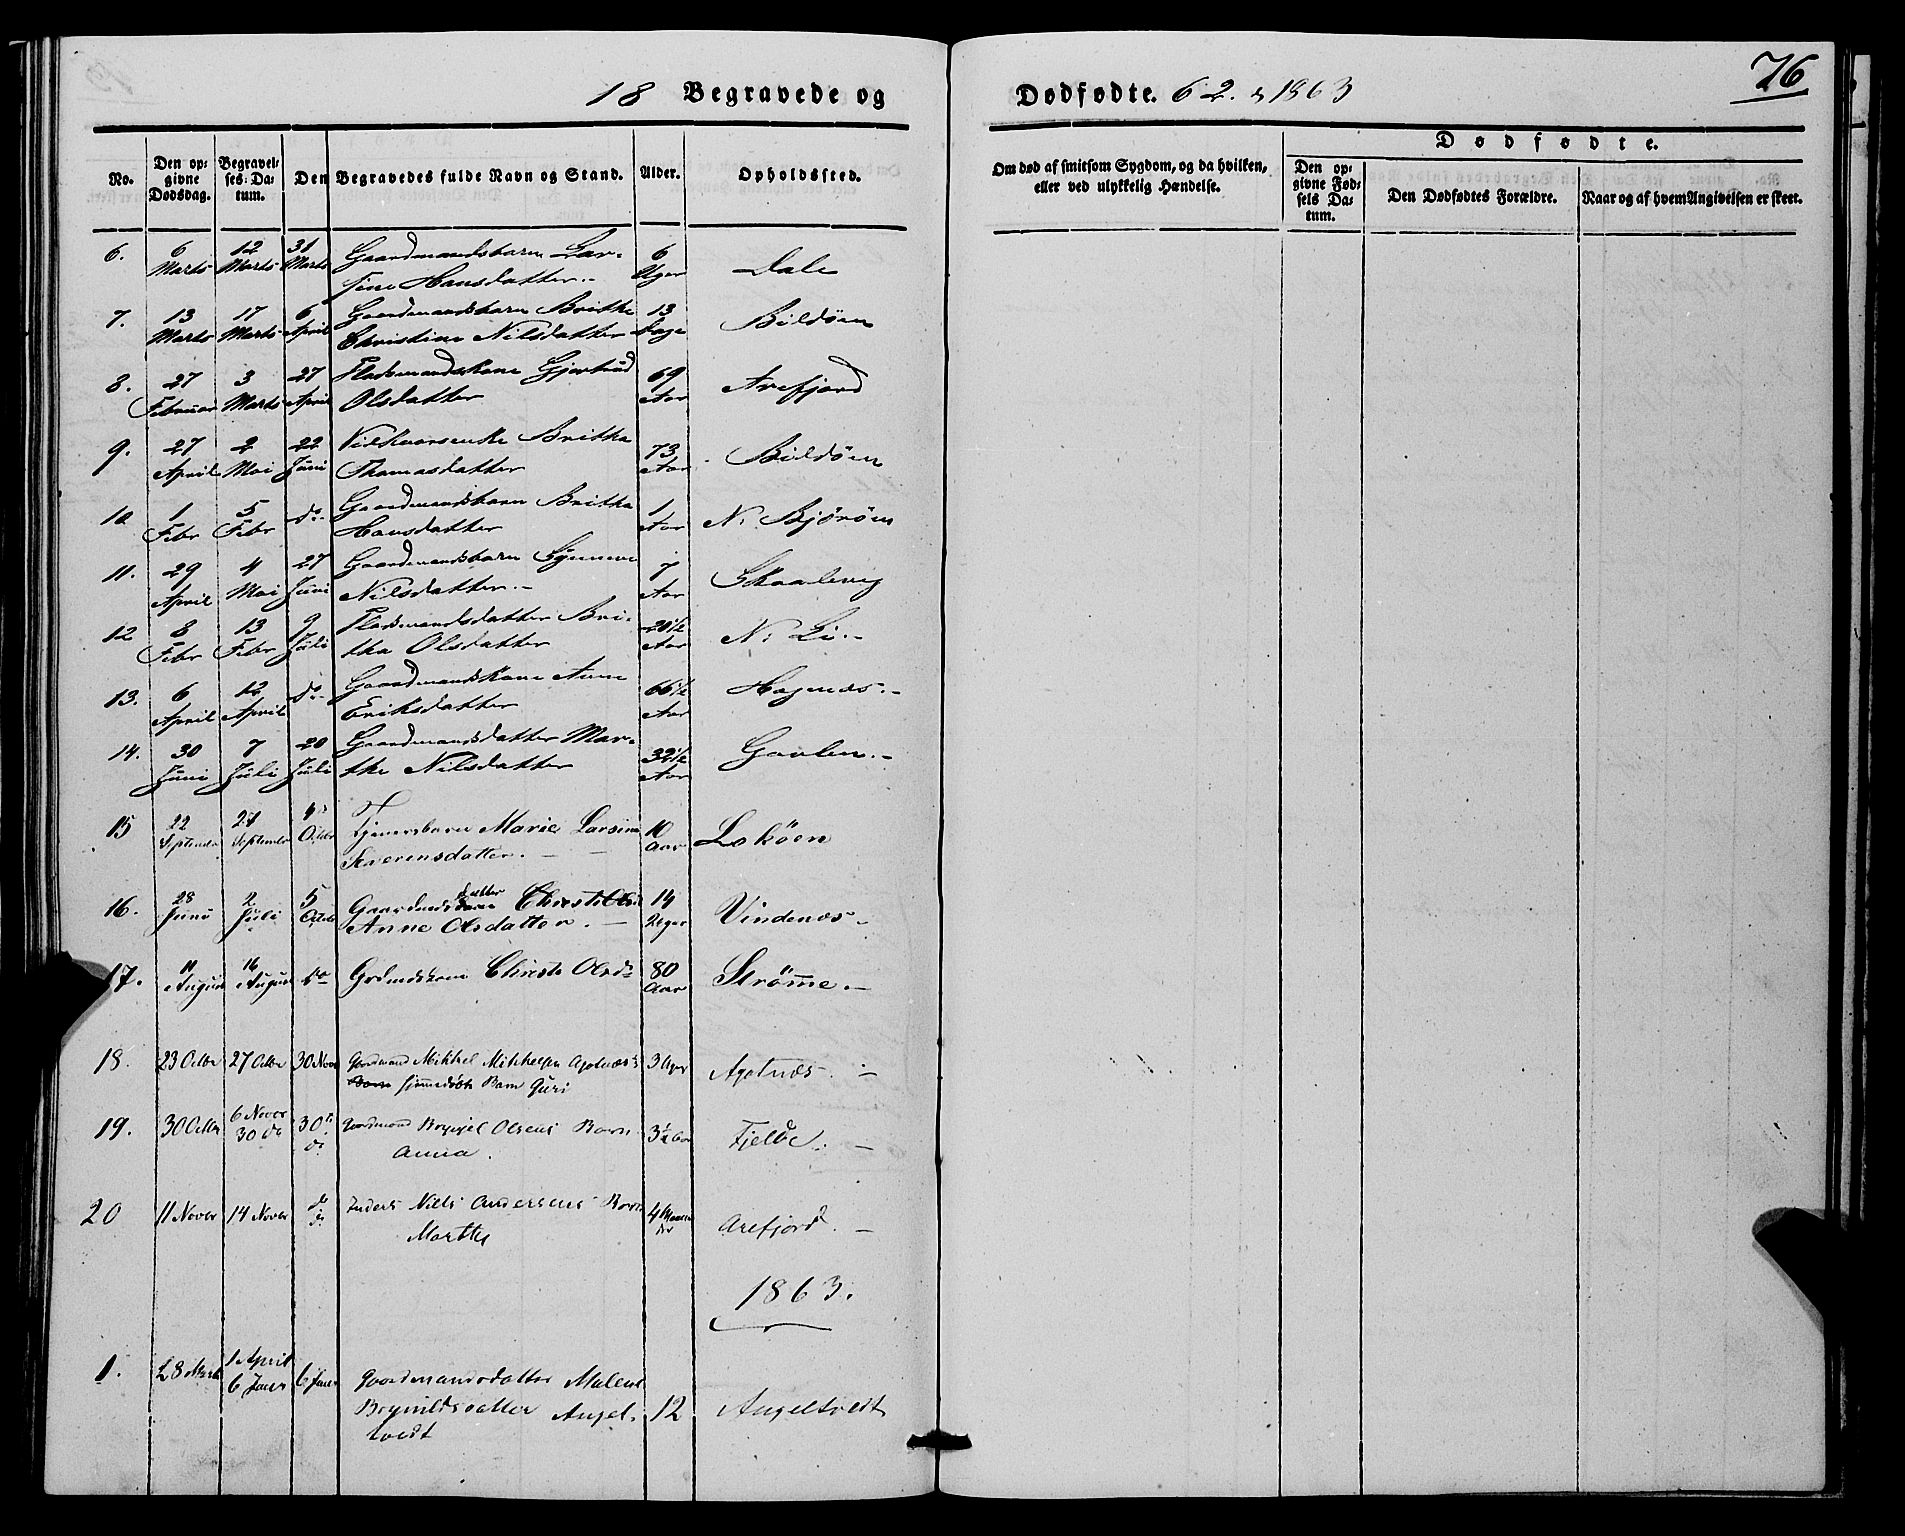 18 Begravede og Dødfødte. 62. & 1863
76
No. | Den opgivne Dødsdag. | Begravelses-Datum. | Den Begravedes fulde Navn og Stand. | Alder. | Opholdssted. | Om død af smitsom Sygdom, og da hvilken, eller ved ulykkelig Hændelse. | Dødfødte. | Den opgivne Fødsels Datum. | Den Dødfødtes Forældre. | Naar og af hvem Angivelsen er skeet.
6. | 6 Marts | 12 Marts | 31 Marts | Gaardmandsbarn Larsine Hansdatter.- | 6 Uger | Dale
7. | 13 Marts | 17 Marts | 6 April | Gaardmandsbarn Britha Christine Nilsdatter | 13 Dage | Bildöen
8. | 27 Februar | 3 Marts | 27 April | Pladsmandskone Gjertrud Olsdatter | 69 Aar | Arefjord
9. | 27 April | 2 Mai | 22 Juni | Britha Thomasdatter | 73 Aar | Bildöen
10 | 1 Febr | 5 Febr | do | Gaardmandsbarn Britha Hansdatter | 1 Aar | N. Björöen
11. | 29 April | 4 Mai | 27 Juni | Gaardmandsbarn Synneve Nilsdatter.- | 7 Aar | Skaalevig
12 | 8 Febr | 13 Febr | 9 Juli | Pladsmandsdatter Britha Olsdatter | 20½ Aar | N. Li.-
13. | 6 April | 12 April | do | Gaardmandskone Anne Eriksdatter | 66½ Aar | Hagenæs.-
14. | 30 Juni | 7 Juli | 20 Juli | Gaardmandsdatter Marthe Nilsdatter | 32½ Aar | Gavlen.-
15 | 22 September | 27 September | 4 Octbr | Tjenersbarn Marie Larsine Severinsdatter. | 10 Aar | Loköen
16. | 28 Juni | 2 Juli | 5 Octob | Gaardmdsdatter Anne Olsdatter. - | 14 Uger | Vindenæs.-
17. | 11 August | 16 August | do | Grdmdskone Christi Olsd. | 80 Aar | Strömme.-
18. | 23 Octbr | 27 Octbr | 30 Novr | Gaardmand Mikkel Mikkelsen Agotnæs's hjemmedøbt Barn Guri | 3 Uger | Agotnæs. -
19. | 30 Octbr | 6 Novbr 30 do | 30te do | Gaardmand Brynjel Olsens Barn Anna. | 3½ Aar | Fjelde. -
20 | 11 Novbr | 14 Novbr | do do | Inders Niels Andersens Barn Marthe | 4 Maaneder | Arefjord. -
1863.
1. | 28 Marts | 1 April 6 Juni | 6 Juni | Gaardmandsdatter Malene Brynildsdatter Angeltvedt | 12 | Angeltvedt